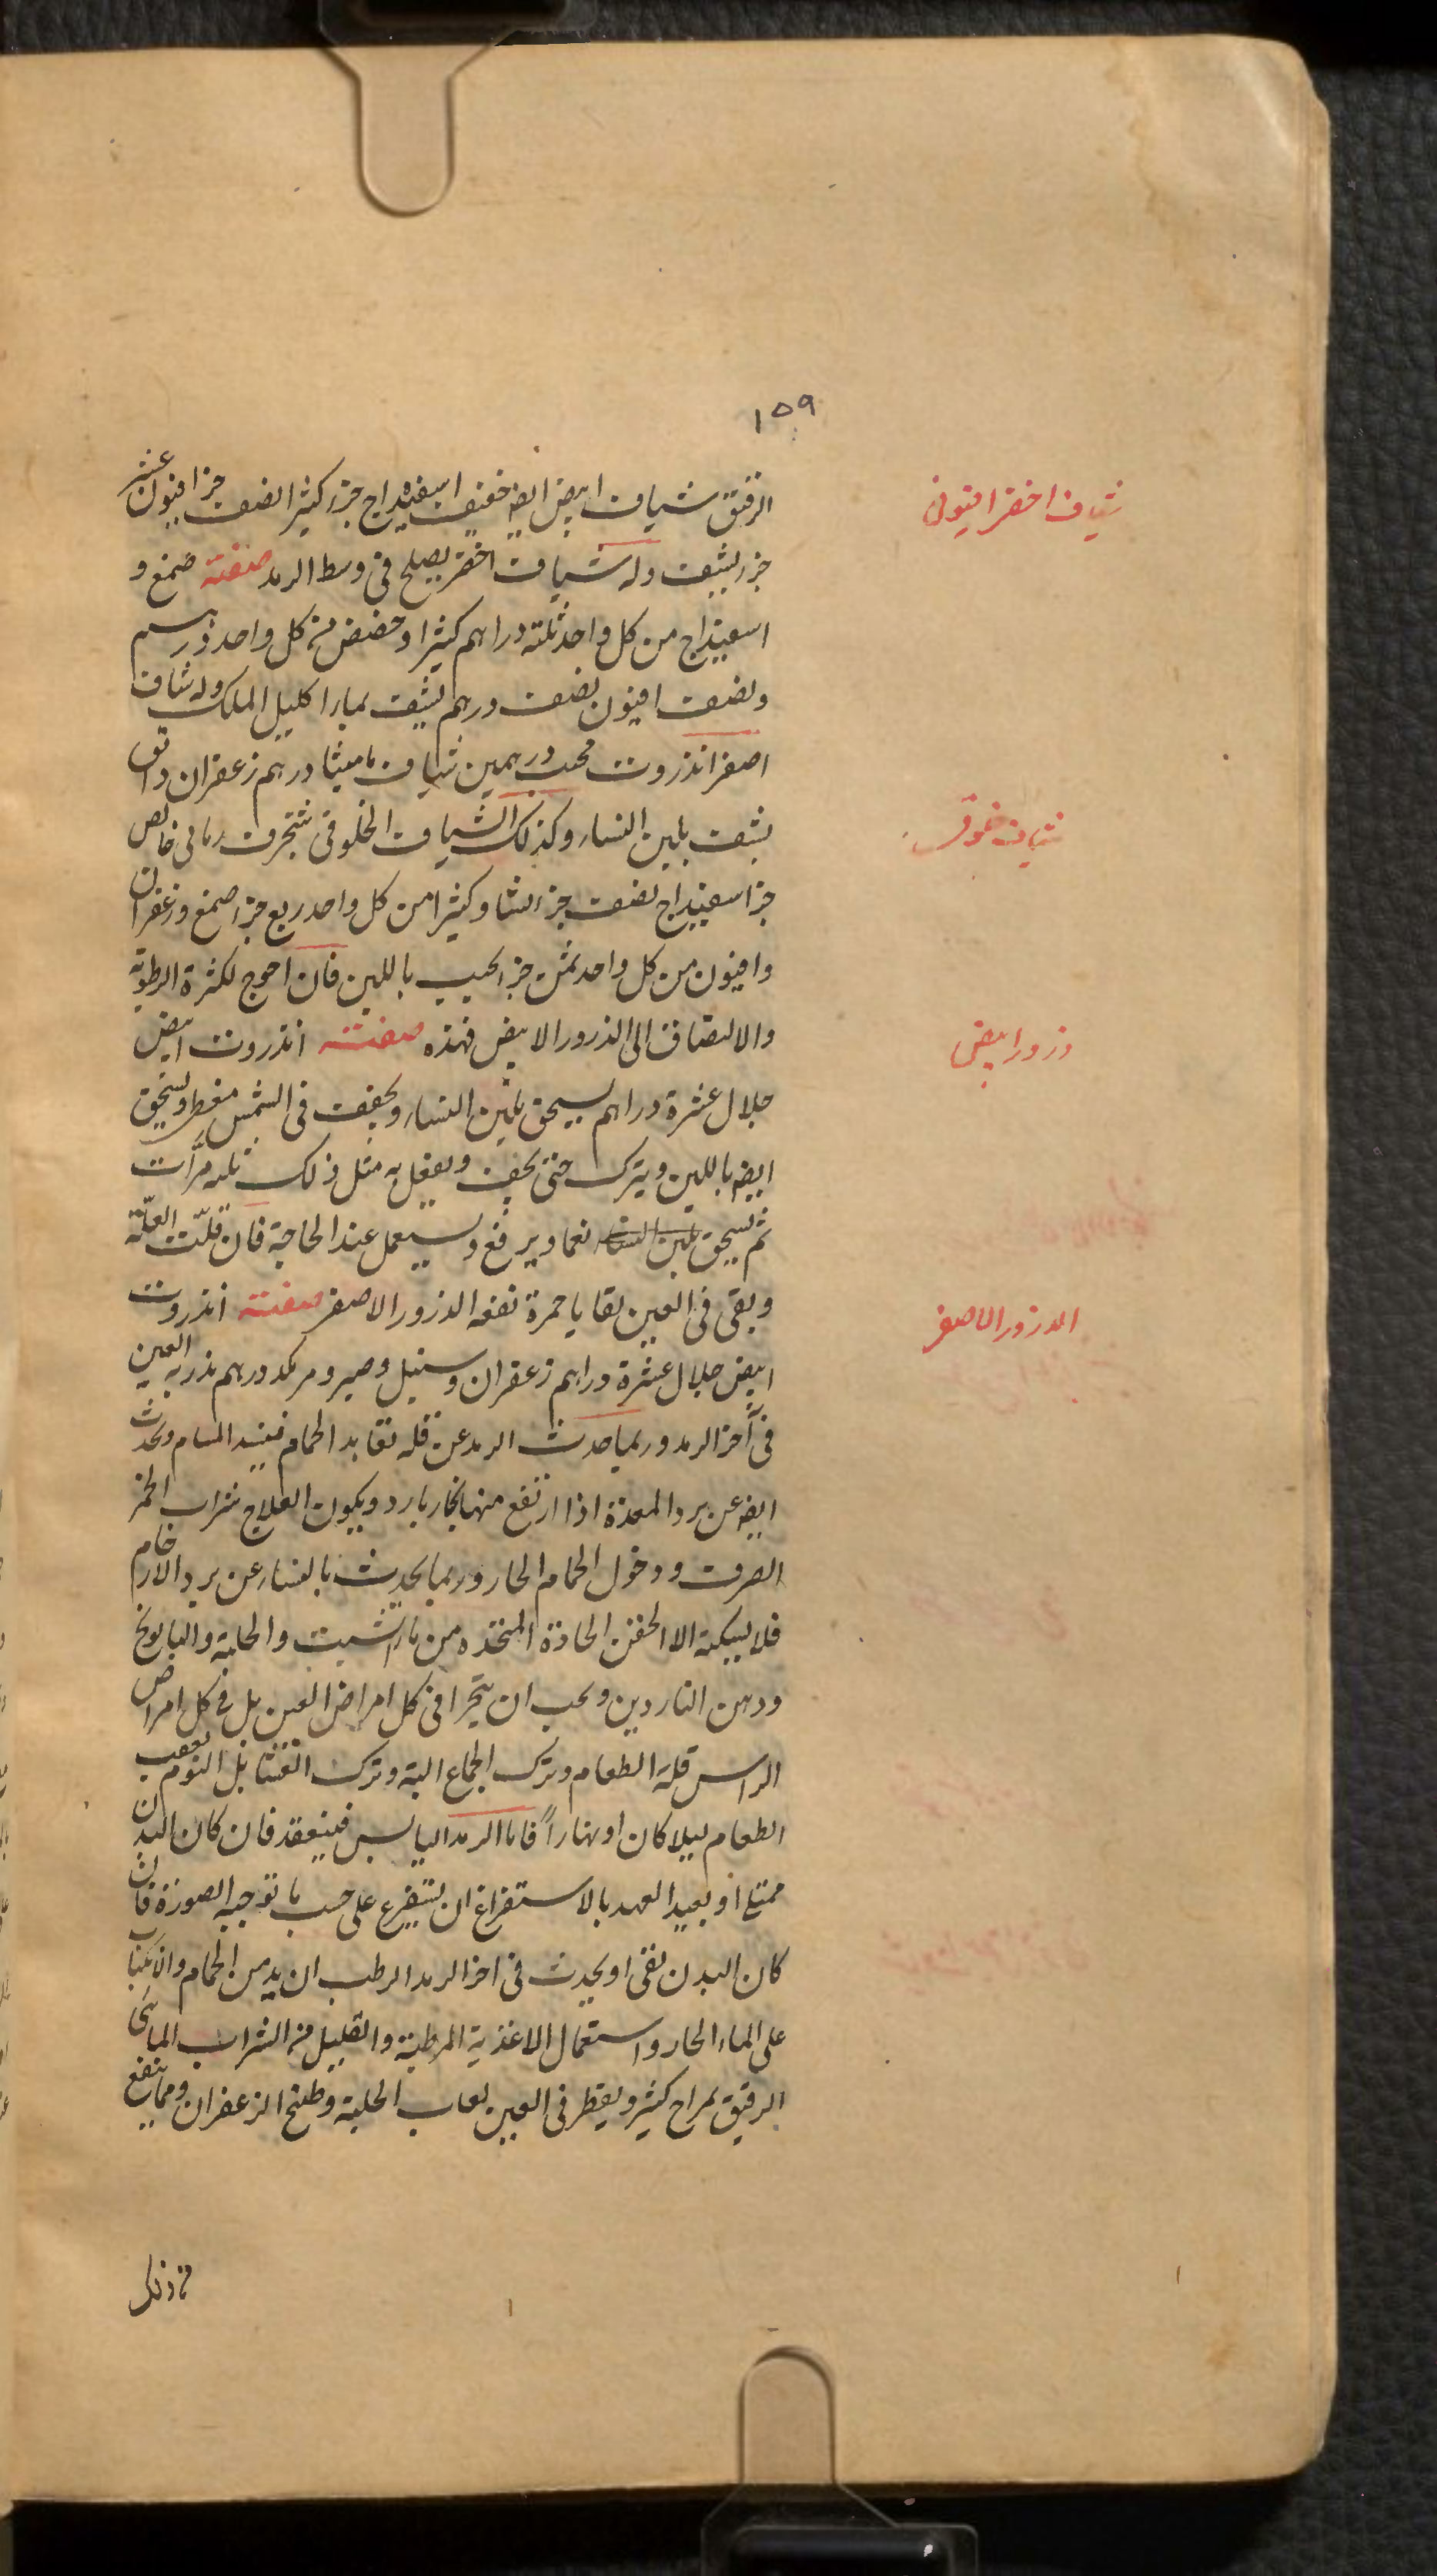 ١٥٩
الرقيق شياف ابيض ايضه خفيف اسفيداج جزء كثيرا نصف جزا افيون عشر
جزء يشيف وله شياف اخضر يصلح فى وسط الرمد صفته صمغ و
اسفيداج من كل واحد ثلثة دراهم كثيرا وحضض من كل واحد درهم
ونصف افيون نصف درهم يشيف بماء اكليل الملك وله شياف
اصفر انذروت محبب درهمين شياف ماميثا درهم زعفران دانق
يشيف بلبن النساء وكذلك الشياف الخلوقى شنجرف رمانى خالص
جزا اسفيداج نصف جزء نشا وكثيرا من كل واحد ربع جزء صمغ وزعفران
وافيون من كل واحد ثمن جزء يحبب باللبن فان احوج لكثرة الرطوبة
والالتصاق الى الذرور الابيض فهذه صفته انذروت ابيض
جلال عشرة دراهم يسحق بلبن النساء ويجفف فى الشمس مغطى ويسحق
ايضه باللبن ويترك حتى يجف ويفعل به مثل ذلك ثلثه مرّات
ثم يسحق بلبن النساء نعما ويرفع ويستعمل عند الحاجة فان قلّت العلّة
وبقى فى العين بقايا حمرة نفعه الذرور الاصفر صفته انذروت
ابيض جلال عشرة دراهم زعفران وسنبل وصبر ومر كد درهم يذر به العين
فى آخر الرمد وربما حدث الرمد عن قله تعاهد الحمام فينسد المسام ويحدث
ايضه عن برد المعدة اذا ارتفع منها بخار بارد ويكون العلاج شراب الخمر
الصرف ودخول الحمام الحار وربما يحدث بالنساء عن برد الارحام
فلا يسكنه الا الحقن الحادة المتخذه من ماء الشبت والحلبة والبابونج
ودهن الناردين ويجب ان يتحرا فى كل امراض العين بل فى كل امراض
الراس قلة الطعام وترك الجماع البتة وترك العشا بل النوم بعقب
الطعام ليلا كان او نهاراً فاما الرمد اليابس فينعقد فان كان البدن
ممتلئ او بعيد العهد بالاستفراغ ان يستفرغ على حسب ما توجبه الصورة فان
كان البدن نقى او يحدث فى اخر الرمد الرطب ان يدمن الحمام والانكباب
على الماء الحار واستعمال الاغذية المرطبة والقليل من الشراب المائى
الرقيق بمزاج كثير ويقطر فى العين لعاب الحلبة وطبخ الزعفران ومما ينفع
شياف اخضر افيونى
شياف خلوقى
ذرور ابيض
الذرور الاصفر
من ذلك